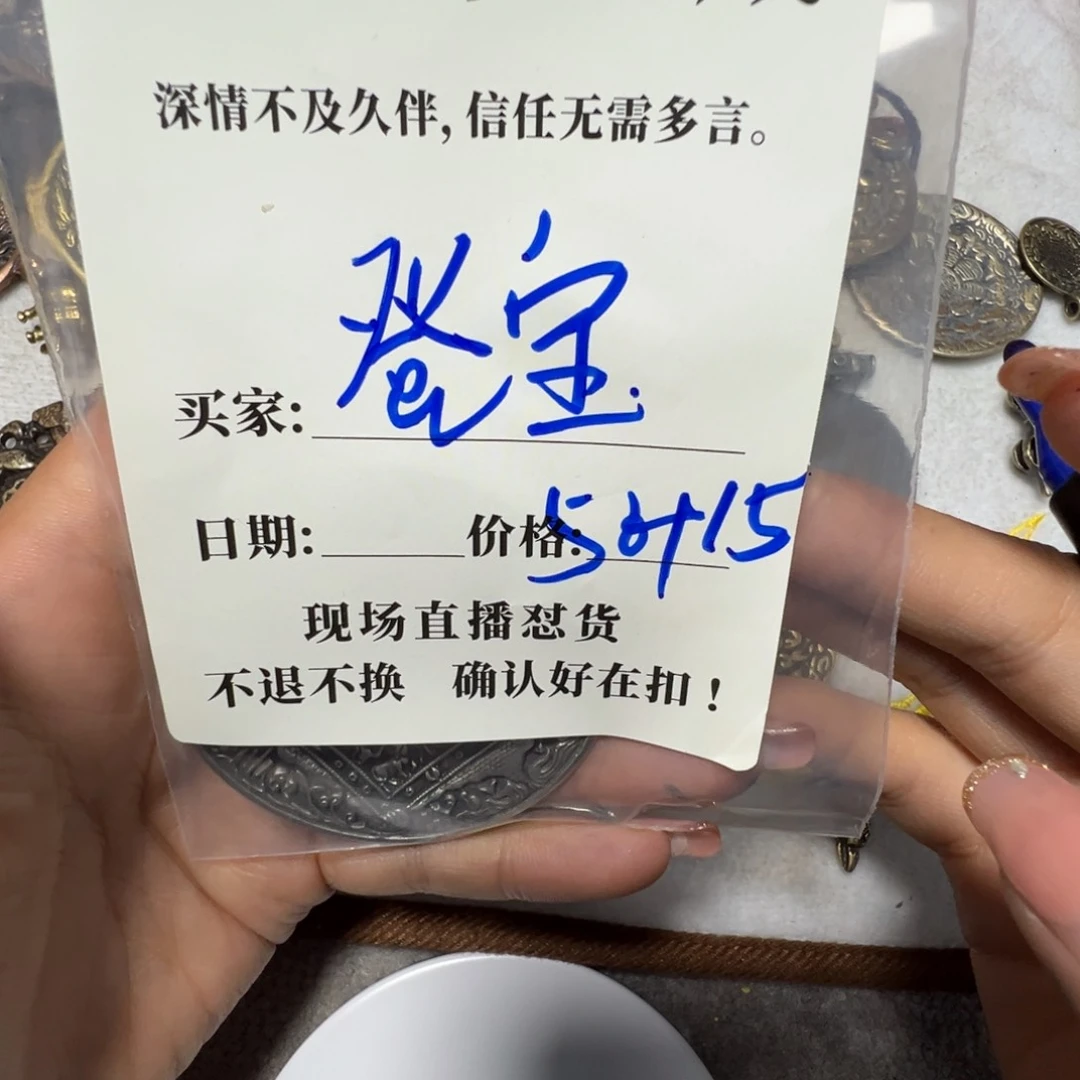 深情不及久伴，信任无需多言。
买家:
日期:______价格:
现场直播怼货
不退不换 确认好在扣！